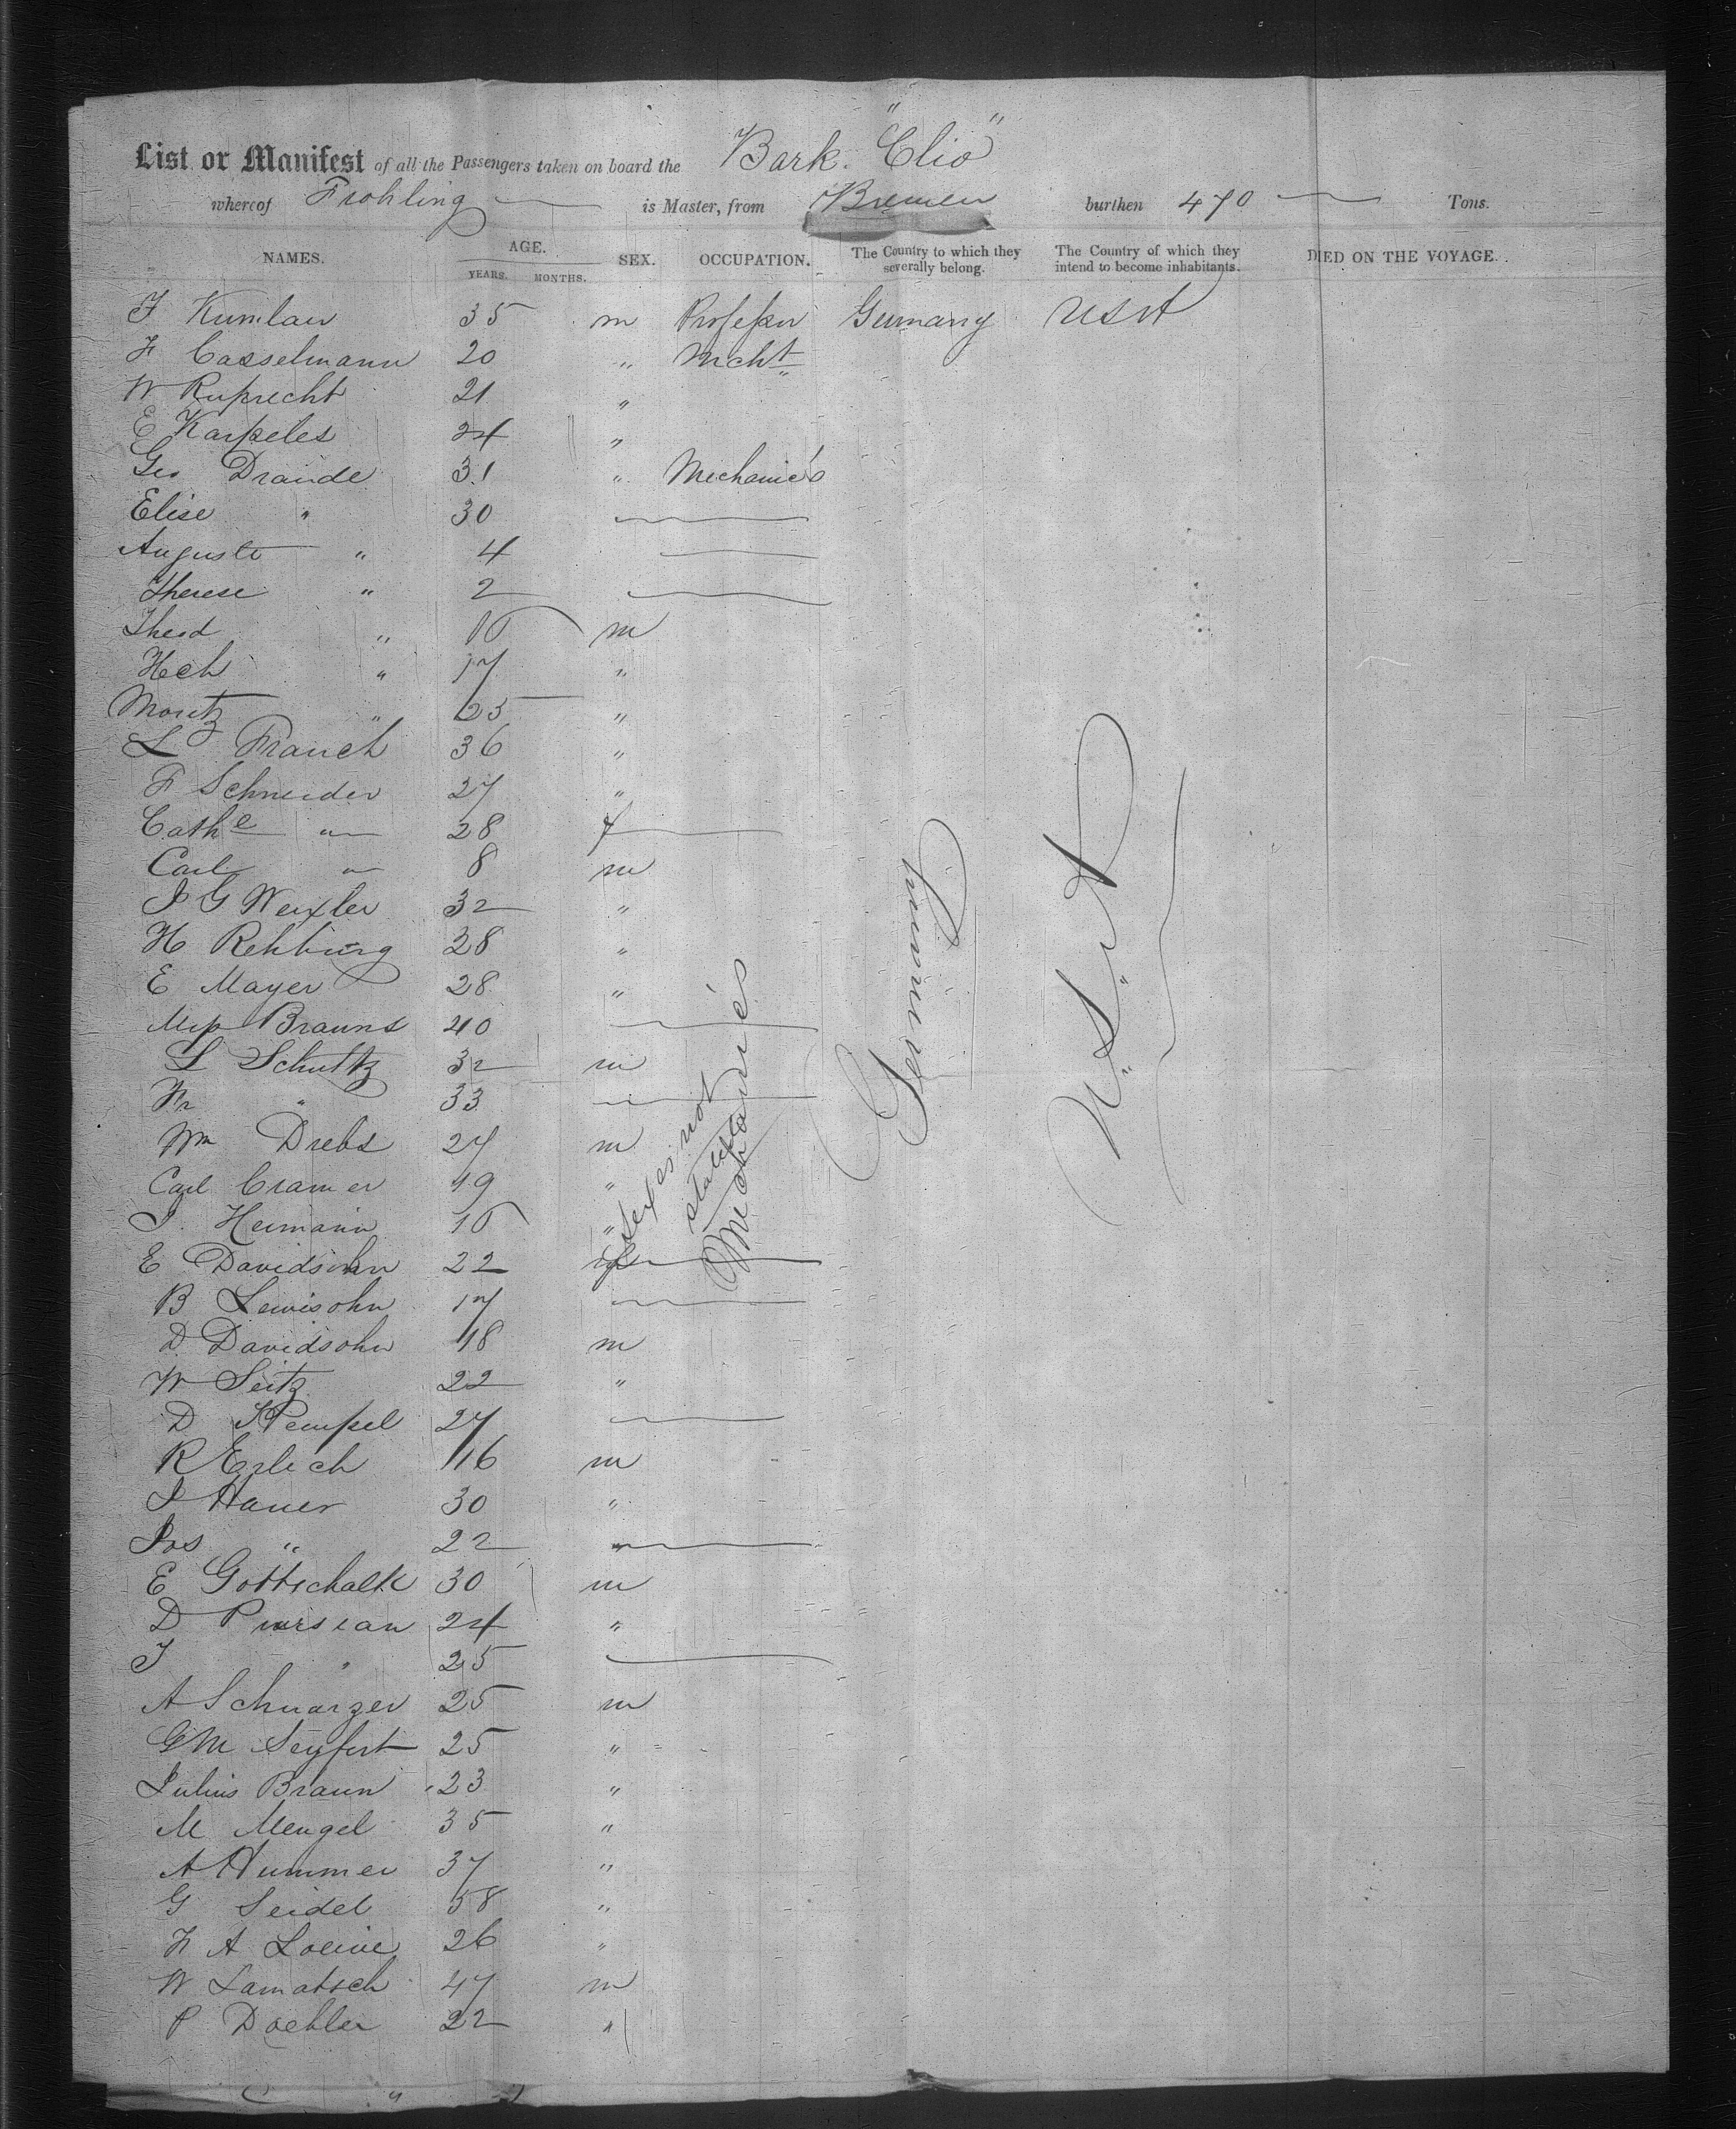 "Clio"
List or Manifest of all the Passengers taken on board the Bark "Clio"
whereof Frohling is Master, from Bremen burthen 470 Tons.
NAMES. AGE. YEARS. MONTHS. SEX. OCCUPATION. The Country to which they severally belong. The Country of which they intend to become inhabitants. DIED ON THE VOYAGE.
F Kumlau 35 m Professor Germany USA
F Casselmann 20 " Mcht
W Ruprecht 21 "
E Karpeles 24 "
Geo Drande 31 " Mechanics
Elise " 30
Auguste " 4
Therese " 2
Theod " 10 m
Hch " 17 "
Moritz " 25 "
L Franch 36 "
F Schneider 27 "
Cathe " 28 f
Carl " 8 m
J G Wexler 32 "
H Rehburg 28 "
E Mayer 28 "
Miss Brauns 40
L Schultz 32 m
Fr " 33
Wm Drebs 27 m
Carl Cramer 19 "
J Heimann 10 "
E Davidsohn 22
B Lewisohn 17
D Davidsohn 18 m
W Seitz 22 "
D Kempel 27
R Erlich 16 m
J Hauer 30 "
Jos " 22
E Gottschalk 30 m
D 24 "
J " 25
A Schwarzer 25 m
G M Seyfert 25 "
Julius Braun 23 "
M Mengel 35 "
A Hummer 37 "
G Seidel 58 "
F A Loewe 26 "
W Lamatsch 47 m
P Doehler 22 "
Sexes not
stated
Mechanics
Germany
U.S.A